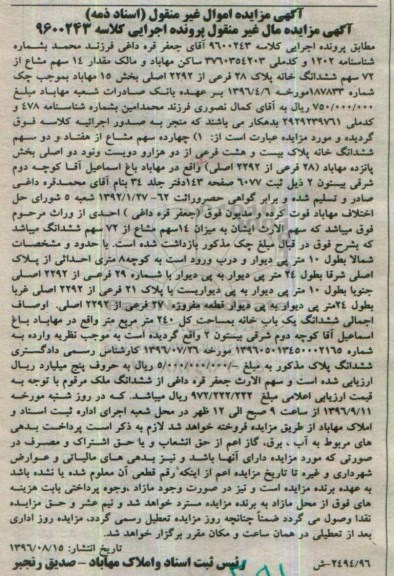 آگهی مزایده اموال غیر منقول (اسناد ذمه)
آگهی مزایده مال غیر منقول پرونده اجرایی کلاسه ۹۶۰۰۲۴۳
مطابق پرونده اجرایی کلاسه ۹۶۰۰۲۴۳ آقای جعفر قره داغی فرزند محمد بشماره
شناسنامه ۱۲۰۲ و کدملی ۳۷۶۰۳۵۴۲۰۳ ساکن مهاباد و مالک مقدار ۱۴ سهم مشاع از
۷۲ سهم ششدانگ خانه پلاک ۲۸ فرعی از ۲۲۹۲ اصلی بخش ۱۵ مهاباد بموجب چک
شماره ۱۸۷۸۳۳مورخه ۱۳۹۶/۴/۶ بر عهده بانک صادرات شعبه مهاباد مبلغ
۷۵۰/۰۰۰/۰۰۰ ریال به آقای کمال نصوری فرزند محمدامین بشماره شناسنامه ۴۷۸ و
کدملی ۲۹۲۹۲۳۹۷۶۱ بدهکار می باشند که منجر به صدور اجرائیه کلاسه فوق
گردیده و مورد مزایده عبارت است از: ۱) چهارده سهم مشاع از هفتاد و دو سهم
ششدانگ خانه پلاک بیست و هشت فرعی از دو هزارو دویست ونود دو اصلی بخش
پانزده مهاباد (۲۸ فرعی از ۲۲۹۲ اصلی) واقع در مهاباد باغ اسماعیل آقا کوچه دوم
شرقی بیستون ۲ ذیل ثبت ۶۰۷۷ صفحه ۱۴۳دفتر جلد ۳۴ بنام آقای محمدقره داغی
صادر و تسلیم شده و برابر گواهی حصروراثت ۶۲- ۱۳۹۲/۱/۲۷ شعبه ۵ شورای حل
اختلاف مهاباد فوت کرده و مدیون فوق (جعفر قره داغی ) احدی از وراث مرحوم
فوق میباشد که سهم الارث ایشان به میزان ۱۴سهم مشاع از ۷۲ سهم ششدانگ میباشد
که بشرح فوق در قبال مبلغ چک مذکور بازداشت شده است. با حدود و مشخصات
شمالا بطول ۱۰ متر پی دیوار و درب ورود است به کوچه۸ متری احداثی از پلاک
اصلی شرقا بطول ۲۴ متر پی دیوار به پی دیوار با شماره ۲۹ فرعی از ۲۲۹۲ اصلی
جنوبا بطول ۱۰ متر پی دیوار به پی دیواریست با پلاک ۲۱ فرعی از ۲۲۹۲ اصلی غربا
بطول ۲۴متر پی دیوار به پی دیوار قطعه مفروزه ۲۷ فرعی از ۲۲۹۲ اصلی. اوصاف
اجمالی ششدانگ یک باب خانه بمساحت کل ۲۴۰ متر مربع متر واقع در مهاباد باغ
اسماعیل آقا کوچه دوم شرقی بیستون ۲ واقع گردیده است به موجب نظریه وارده به
شماره ۱۳۹۶۰۵۰۱۳۴۵۰۰۰۲۱۶۵ مورخه ۱۳۹۶/۰۷/۲۶ کارشناس رسمی دادگستری
ششدانگ پلاک مذکور به مبلغ -/۵/۰۰۰/۰۰۰/۰۰۰ ریال به حروف پنج میلیارد ریال
ارزیابی شده است و سهم الارث جعفر قره داغی از ششدانگ ملک مرقوم با توجه به
قیمت ارزیابی اعلامی مبلغ ۹۷۲/۲۲۲/۲۲۲ ریال میباشد. که در روز شنبه مورخه
۱۳۹۶/۹/۱۱ از ساعت ۹ صبح الی ۱۲ ظهر در محل شعبه اجرای اداره ثبت اسناد و
املاک مهاباد از طریق مزایده فروخته خواهد شد لازم به ذکر است پرداخت بدهی
های مربوط به آب ، برق، گاز اعم از حق انشعاب و یا حق اشتراک و مصرف در
صورتی که مورد مزایده دارای آنها باشد و نیز بدهی های مالیاتی و عوارض
شهرداری و غیره تا تاریخ مزایده اعم از اینکه رقم قطعی آن معلوم شده یا نشده باشد
به عهده برنده مزایده است و نیز در صورت وجود مازاد ،وجوه پرداختی بابت هزینه
های فوق از محل مازاد به برنده مزایده مسترد خواهد شد و نیم عشر و حق مزایده
نقدا وصول می گردد ضمناً چنانچه روز مزایده تعطیل رسمی گردد، مزایده روز اداری
بعد از تعطیلی در همان ساعت و مکان مقرر برگزار خواهد شد.
تاریخ انتشار: ۱۳۹۶/۰۸/۱۵
۲۴۹۴/۹۶-ش رئیس ثبت اسناد واملاک مهاباد - صدیق رنجبر